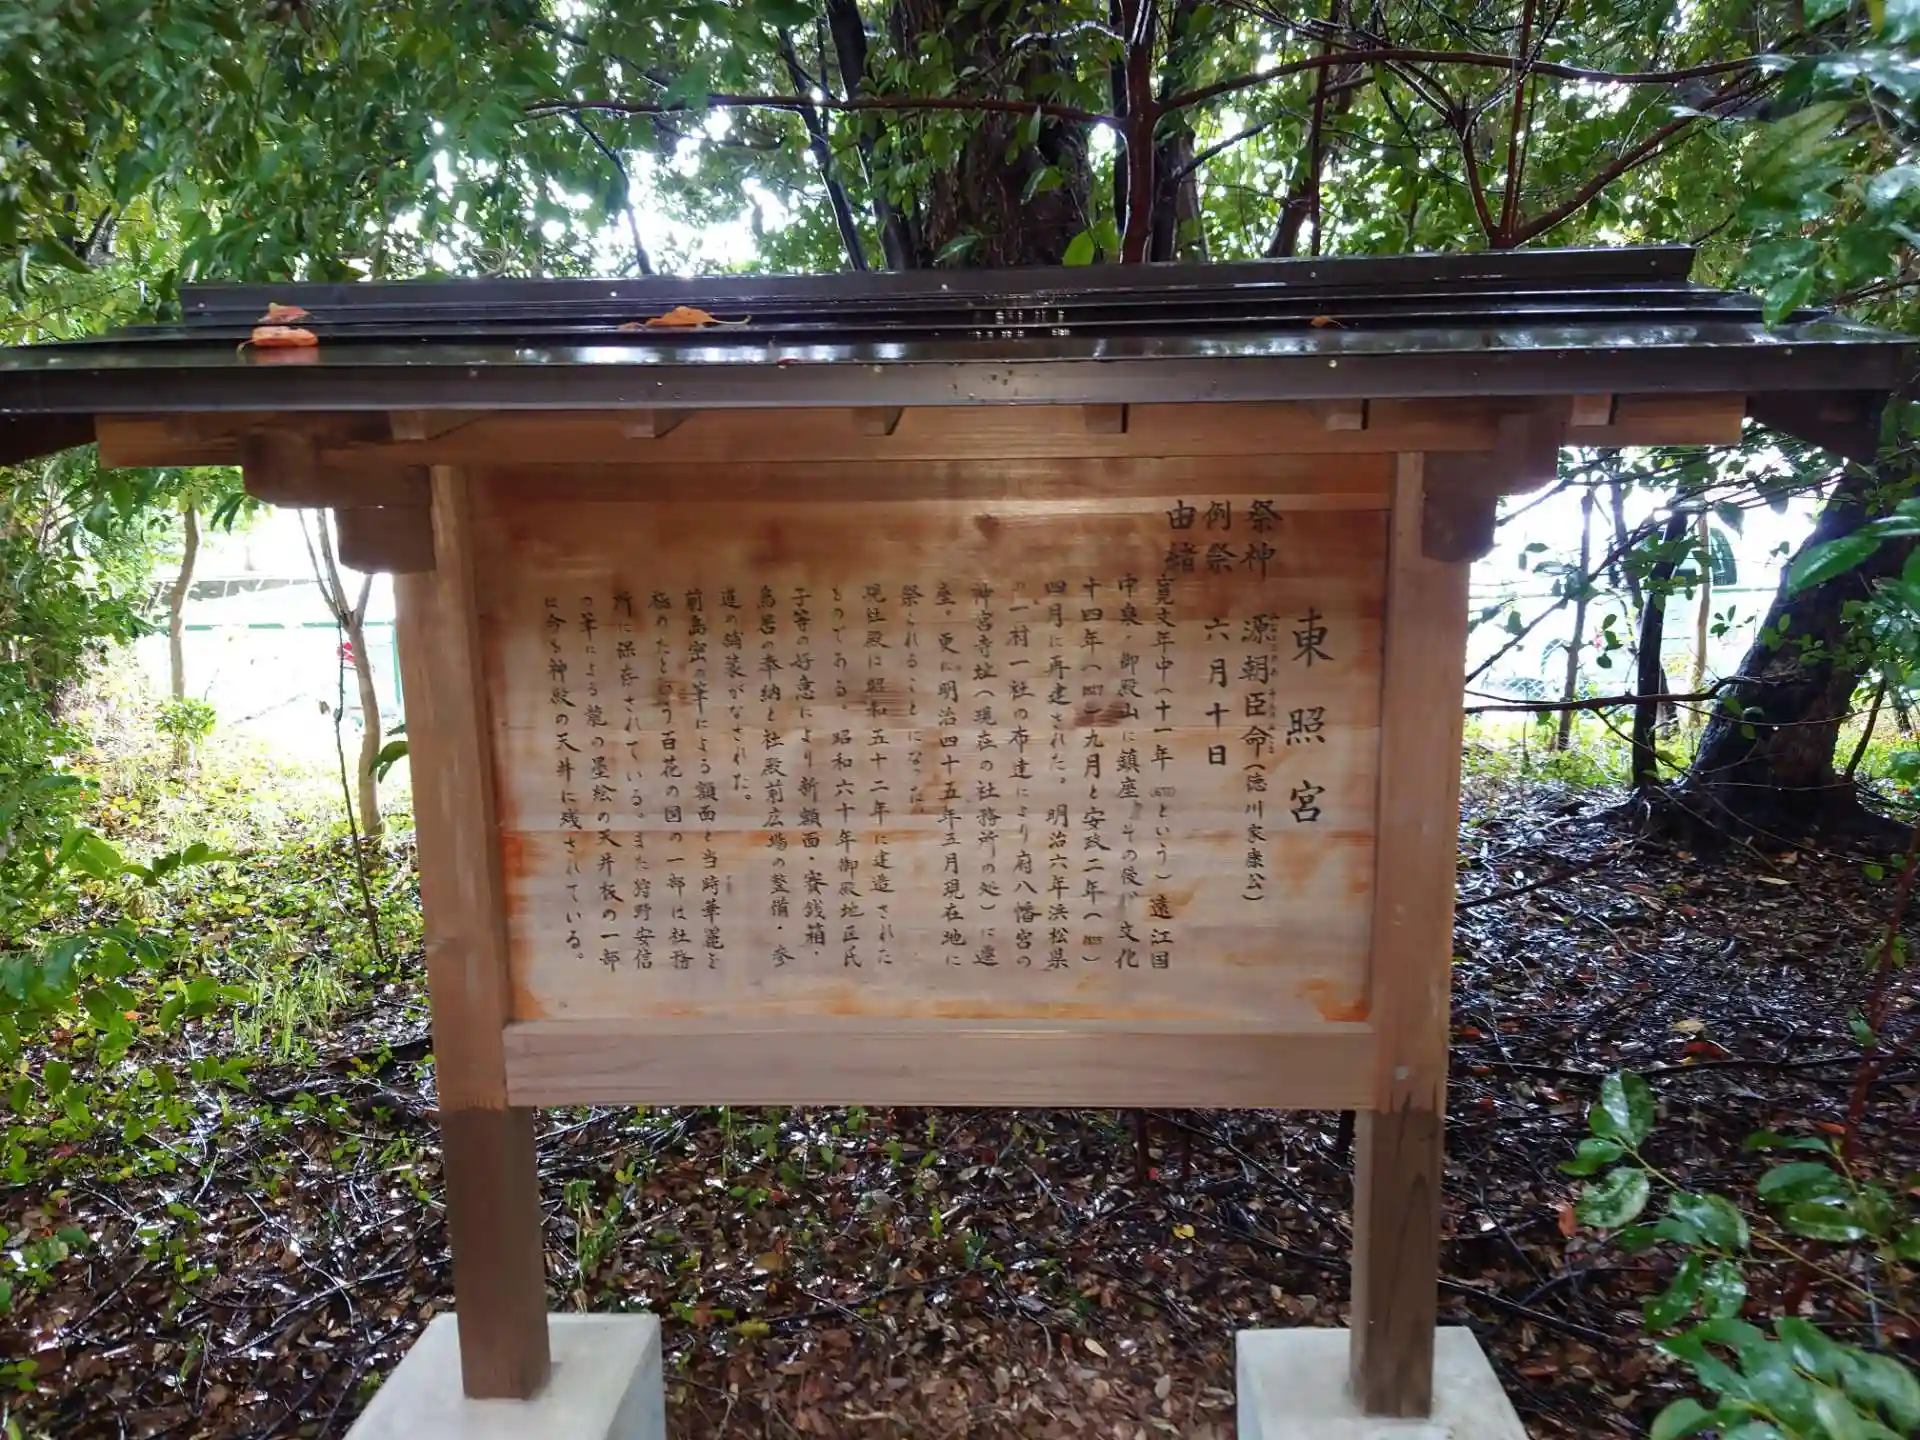 東照宮
祭神 源朝臣命(徳川家康公)
例祭 六月十日
由緒
寛文年中(十一年(1671)という)遠江国
中泉・御殿山に鎮座 その後、文化
十四年(1817)九月と安政二年(1855)
四月に再建された。明治六年浜松県
の一村一社の布達により府八幡宮の
神宮寺址(現在の社務所の処)に遷
座。更に明治四十五年五月現在地に
祭られることになった。
現社殿は昭和五十二年に建造された
ものである。昭和六十年御殿地区氏
子等の好意により新額面・賽銭箱・
鳥居の奉納と社殿前広場の整備・参
道の舗装がなされた。
前島密の筆による額面と当時華麗を
極めたという百花の図の一部は社務
所に保存されている。また狩野安信
の筆による龍の墨絵の天井板の一部
は今も神殿の天井に残されている。